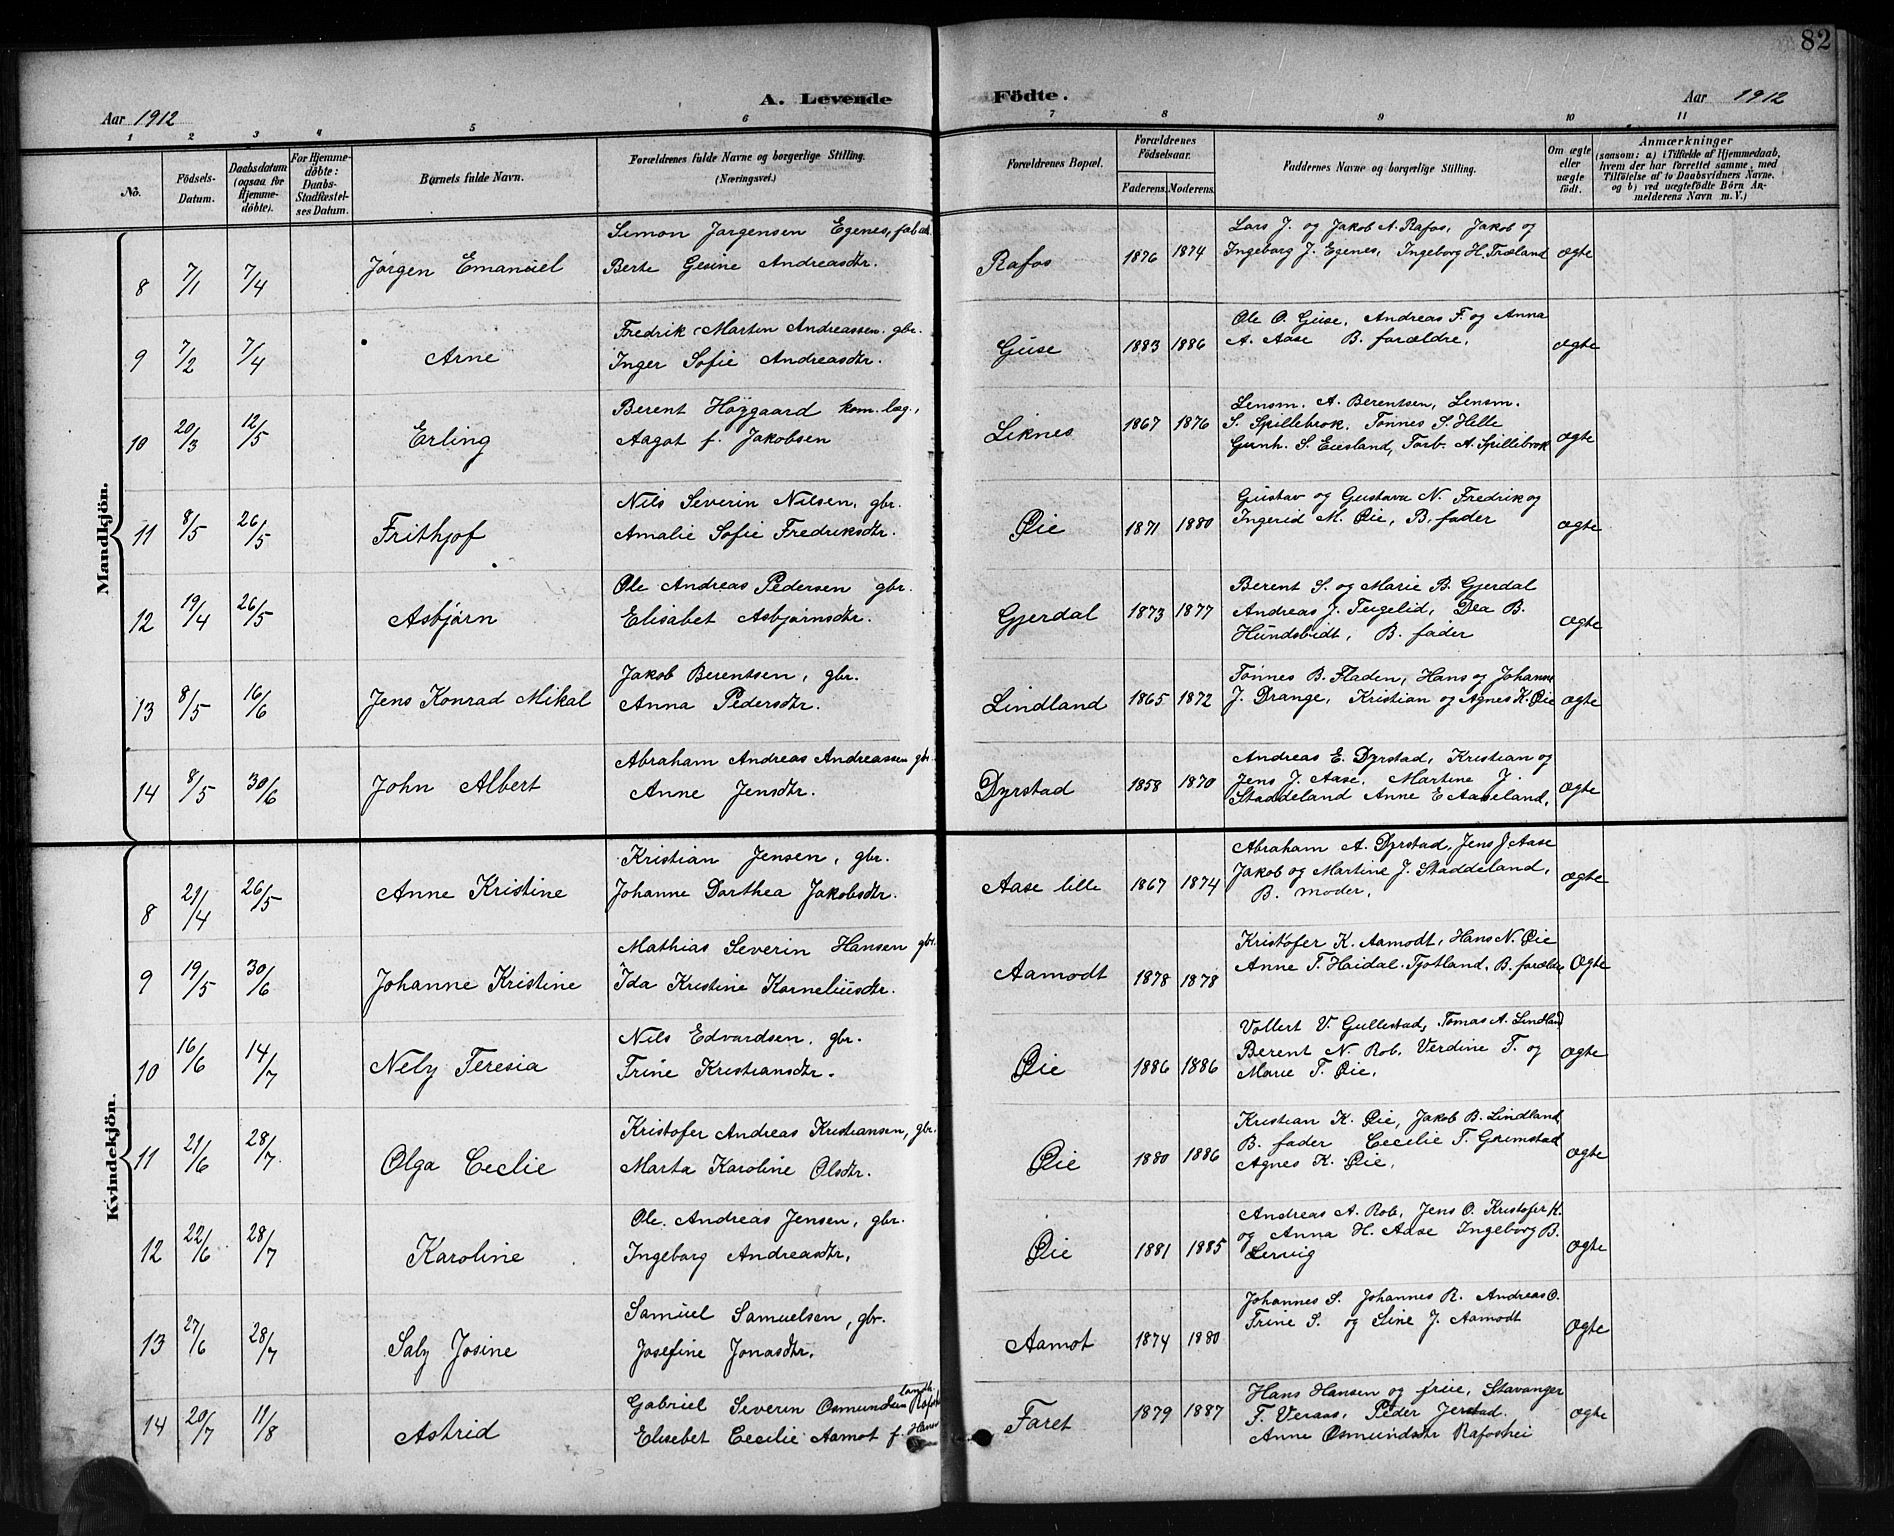 82
A. Levende Födte.
Aar 1912
Aar 1912
1 2 3 4 5 6 7 8 9 10 11
No.
Födsels-Datum.
Daabsdatum (ogsaa for Hjemme-døbte).
For Hjemme-døbte: Daabs-Stadfæstel-ses Datum.
Barnets fulde Navn.
Forældrenes fulde Navne og borgerlige Stilling. (Næringsvei.)
Forældrenes Bopæl.
Forældrenes Fødselsaar.
Faderens. Moderens.
Faddernes Navne og borgerlige Stilling.
Om ægte eller uægte født.
Anmærkninger
(saasom: a) i Tilfælde af Hjemmedaab, hvem der har forrettet samme, med Tilføielse af to Daabsvidners Navne. og b) ved uægtefødte Børn An-melderens Navn m. V.)
Mandkjön.
8 7/1 7/4 Jørgen Emanuel
Simon Jørgensen Egenes,
Berte Gesine Andreasdtr.
Rafos 1876 1874
Lars J. og Jakob A. Rafos, Jakob og
Ingeborg J. Egenes, Ingeborg H. Træland
ægte
9 7/2 7/4 Arne
Fredrik Martin Andreassen. gbr.
Inger Sofie Andreasdtr.
Guse 1883 1886
Ole O. Guse, Andreas F. og Anna
A. Aase B. forældre,
ægte
10 20/3 12/5 Erling
Berent Höygaard kom. læg,
Aagot f. Jakobsen
Liknes 1867 1876
Lensm. A. Berentsen, Lensm.
S. Spillebrok, Tönnes S. Helle
Gunh. S. Eiesland, Torb. A. Spillebrok
ægte
11 8/5 26/5 Frithjof
Nils Severin Nilsen, gbr.
Amalie Sofie Fredriksdtr.
Øie 1871 1880
Gustav og Gustava N. Fredrik og
Ingerid M. Øie, B. fader
ægte
12 19/4 26/5 Asbjørn
Ole Andreas Pedersen gbr.
Elisabet Asbjørnsdtr.
Gjerdal 1873 1877
Berent S. og Marie B. Gjerdal
Andreas J. Teigelid, Dea B.
B. fader
ægte
13 8/5 16/6 Jens Konrad Mikal
Jakob Berentsen, gbr.
Anna Pedersdtr.
Lindland 1865 1872
Tønnes B. Fladen, Hans og Johanne
J. Drange, Kristian og Agnes K. Øie
ægte
14 8/5 30/6 John Albert
Abraham Andreas Andreassen gbr.
Anne Jensdtr.
Dyrstad 1858 1870
Andreas E. Dyrstad, Kristian og
Jens J. Aase, Martine J.
Staddeland Anne E Aaseland,
ægte
Kvindekjön.
8 21/4 26/5 Anne Kristine
Kristian Jensen, gbr.
Johanne Dorthea Jakobsdtr.
Aase lille 1867 1874
Abraham A. Dyrstad, Jens J. Aase
Jakob og Martine J. Staddeland,
B. moder,
ægte
9 19/5 30/6 Johanne Kristine
Mathias Severin Hansen gbr.
Ida Kristine Korneliusdtr.
Aamodt 1878 1878
Kristofer K. Aamodt, Hans N. Øie
Anne T. Haidal. Tjotland, B. forældre
Ægte
10 16/6 14/7 Nely Teresia
Nils Edvardsen, gbr.
Trine Kristiansdtr.
Øie 1886 1886
Vollert V. Gullestad, Tomas A. Lindland
Berent N. Rob, Verdine T. og
Marie T. Øie,
ægte
11 21/6 28/7 Olga Ceclie
Kristofer Andreas Kristiansen, gbr.
Marta Karoline Olsdtr.
Øie 1880 1886
Kristian K. Øie, Jakob B. Lindland
B. fader Cecilie T. Grimstad
Agnes K. Øie,
ægte
12 22/6 28/7 Karoline
Ole Andreas Jensen, gbr.
Ingeborg Andreasdtr,
Øie 1881 1885
Andreas A. Rob, Jens O. Kristofer K.
og Anna H. Aase Ingeborg B.
Lervig
ægte
13 27/6 28/7 Saly Josine
Samuel Samuelsen, gbr.
Josefine Jonasdtr,
Aamot 1874 1880
Johannes S. Johannes R. Andreas O.
Trine S. og Sine J. Aamodt
ægte
14 20/7 11/8 Astrid
Gabriel Severin Osmundsen
Elisebet Cecilie Aamot f. Hansen
Faret 1879 1887
Hans Hansen og frue, Stavanger
T. Veraas, Peder Jerstad.
Anne Osmundsdtr Rafoshei
ægte